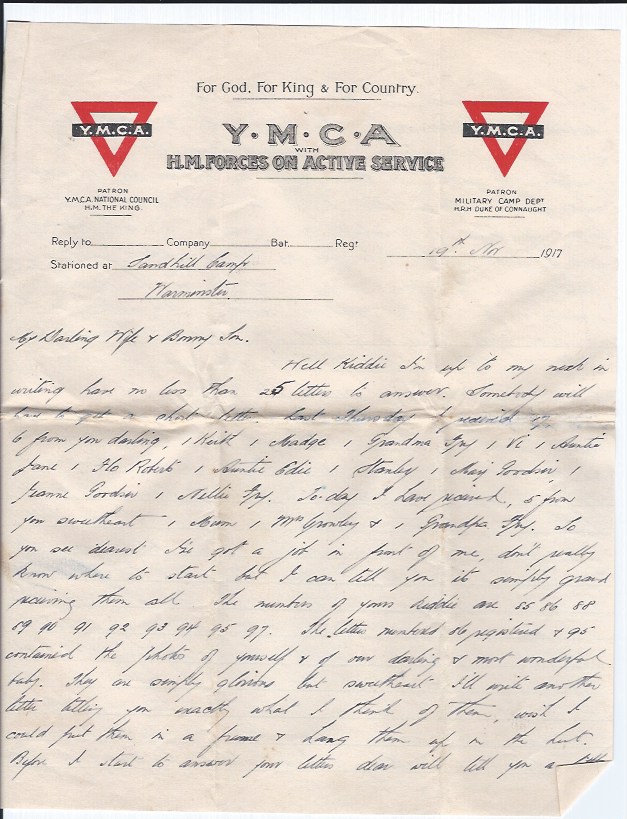 For God, For King & For Country.
Y.M.C.A.
Y.M.C.A
WITH
H.M. FORCES ON ACTIVE SERVICE
Y.M.C.A.
PATRON
Y.M.C.A. NATIONAL COUNCIL
H.M. THE KING.
PATRON
MILITARY CAMP DEPT
H.R.H DUKE OF CONNAUGHT
Reply to Company Bat Regt
19th Nov 1917
Stationed at Sandhill Camp
Warminster.
My Darling Wife & Bonny Son.
Well Kiddie I'm up to my neck in
writing have no less than 25 letters to answer. Somebody will
have to get a short letter. Last Thursday I received
6 from you darling, 1 Keith 1 Madge 1 Grandma Fry 1 Vi 1 Auntie
Jane 1 Flo Robert 1 Auntie Edie 1 Stanley 1 Marj Goodsir, 1
Jeanne Goodsir 1 Nellie Fry. To-day I have received, 5 from
you sweetheart 1 Mum 1 Mrs & 1 Grandpa Fry. So
you see dearest I've got a job in front of me, don't really
know where to start but I can tell you its simply grand
receiving them all. The numbers of yours Kiddie are 85 86 88
89 90 91 92 93 94 95 97. The letters numbered registered & 95
contained the photos of yourself & of our darling & most wonderful
baby. They are simply glorious but sweetheart I'll write another
letter telling you exactly what I think of them, wish I
could put them in a frame & hang them up in the hut.
Before I start to answer your letters dear will tell you a